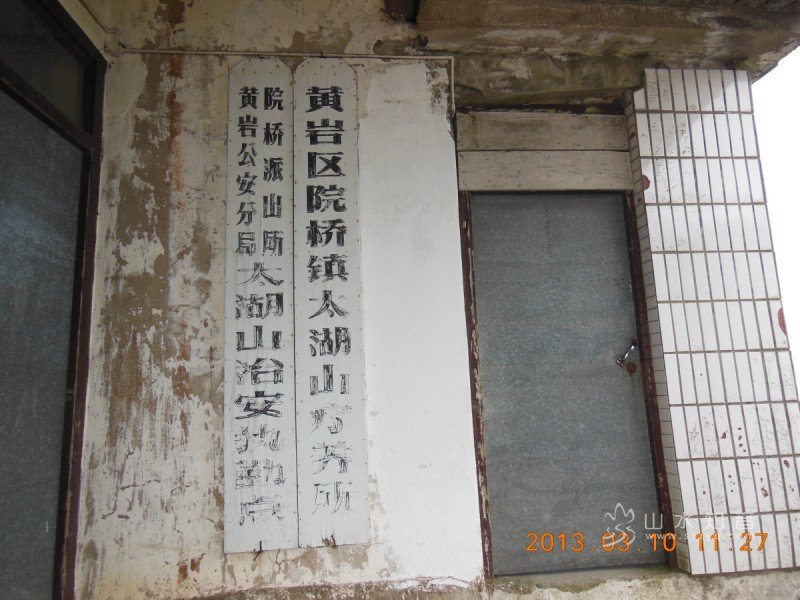 黄岩区院桥镇太湖山疗养所
黄岩公安分局
院桥派出所
太湖山治安执勤点
2013.03.10 11:27
山水